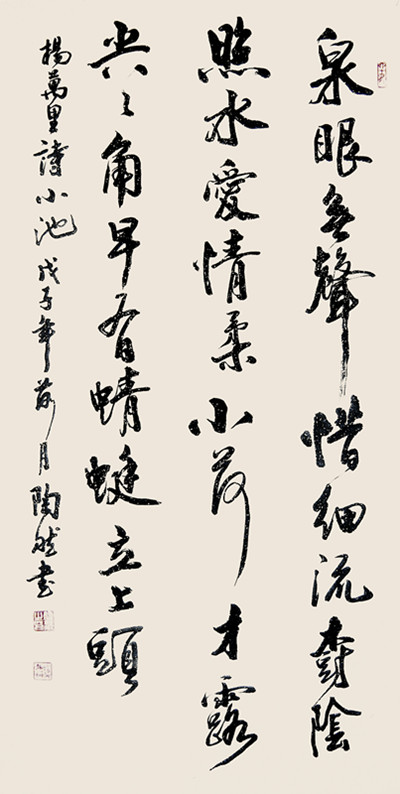 泉眼無聲惜細流樹陰
照水愛情柔小荷才露
尖〻角早有蜻蜓立上頭
楊萬里詩小池戊子年荷月陶然書